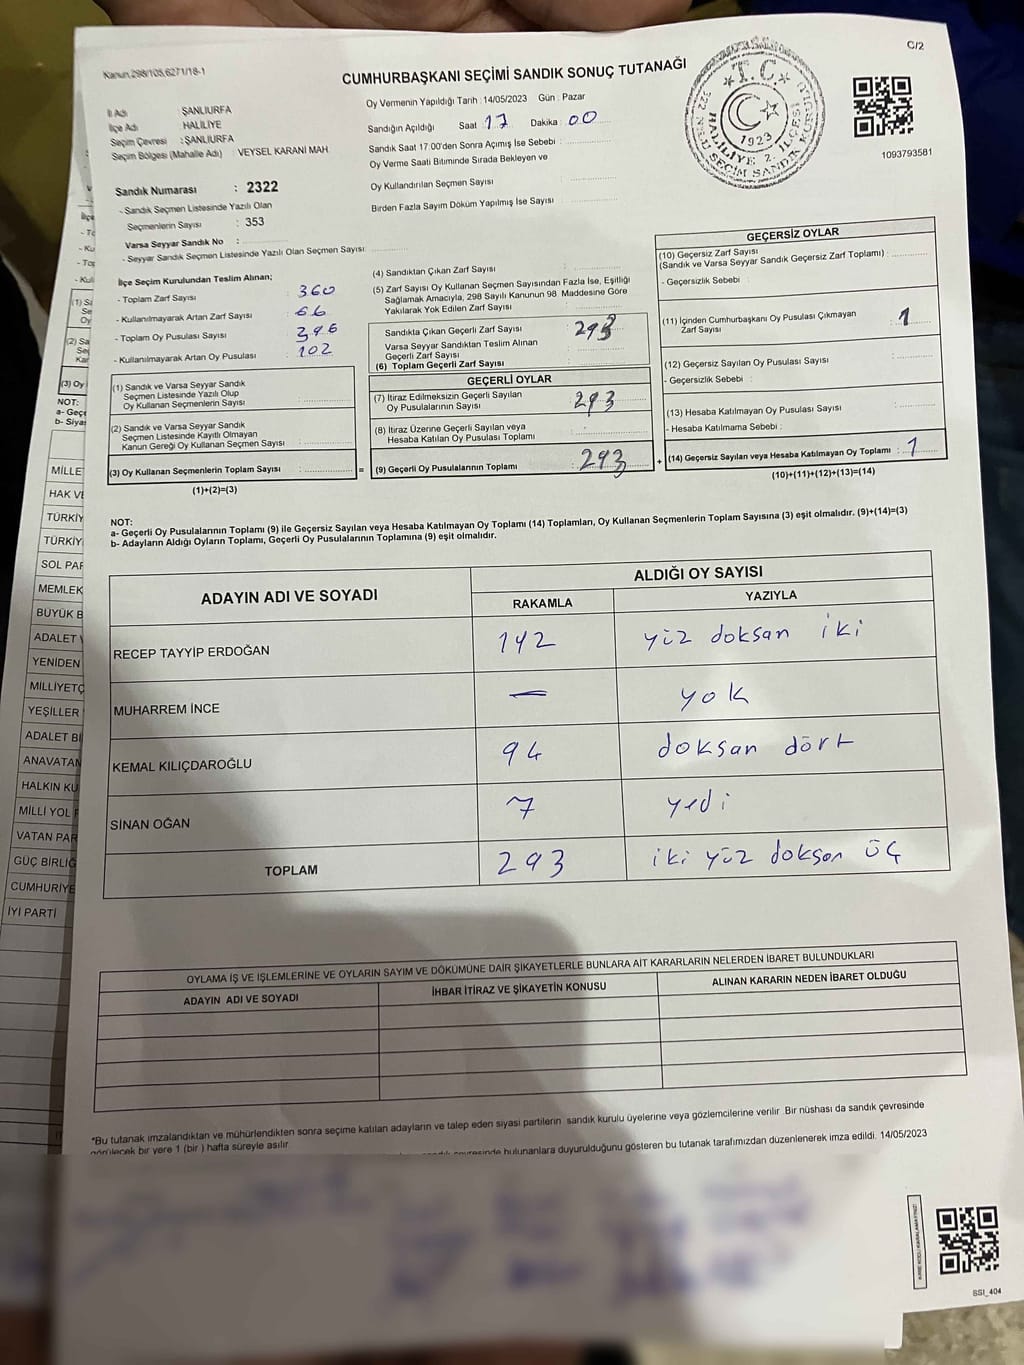 C/2
Kanun.298/105,6271/18-1
CUMHURBAŞKANI SEÇİMİ SANDIK SONUÇ TUTANAĞI
İl Adı ŞANLIURFA
İlçe Adı : HALİLİYE
Seçim Çevresi : ŞANLIURFA
Seçim Bölgesi (Mahalle Adı) : VEYSEL KARANİ MAH.
Oy Vermenin Yapıldığı Tarih :14/05/2023 Gün : Pazar
Sandığın Açıldığı Saat 17 Dakika 00
Sandık Saat 17.00'den Sonra Açımış İse Sebebi :
Oy Verme Saati Bitiminde Sırada Bekleyen ve
Oy Kullandırılan Seçmen Sayısı :
Birden Fazla Sayım Döküm Yapılmış İse Sayısı :
T.C.
1923
HALİLİYE 2. İLÇESİ
1093793581
Sandık Numarası : 2322
- Sandık Seçmen Listesinde Yazılı Olan
Seçmenlerin Sayısı : 353
Varsa Seyyar Sandık No :
- Seyyar Sandık Seçmen Listesinde Yazılı Olan Seçmen Sayısı:
İlçe Seçim Kurulundan Teslim Alınan;
- Toplam Zarf Sayısı : 360
- Kullanılmayarak Artan Zarf Sayısı : 66
- Toplam Oy Pusulası Sayısı : 396
- Kullanılmayarak Artan Oy Pusulası : 102
(1) Sandık ve Varsa Seyyar Sandık
Seçmen Listesinde Yazılı Olup
Oy Kullanan Seçmenlerin Sayısı :
(2) Sandık ve Varsa Seyyar Sandık
Seçmen Listesinde Kayıtlı Olmayan
Kanun Gereği Oy Kullanan Seçmen Sayısı :
(3) Oy Kullanan Seçmenlerin Toplam Sayısı : =
(1)+(2)=(3)
(4) Sandıktan Çıkan Zarf Sayısı :
(5) Zarf Sayısı Oy Kullanan Seçmen Sayısından Fazla İse, Eşitliği
Sağlamak Amacıyla, 298 Sayılı Kanunun 98. Maddesine Göre
Yakılarak Yok Edilen Zarf Sayısı :
Sandıkta Çıkan Geçerli Zarf Sayısı : 293
Varsa Seyyar Sandıktan Teslim Alınan
Geçerli Zarf Sayısı :
(6) Toplam Geçerli Zarf Sayısı :
GEÇERLİ OYLAR
(7) İtiraz Edilmeksizin Geçerli Sayılan
Oy Pusulalarının Sayısı : 293
(8) İtiraz Üzerine Geçerli Sayılan veya
Hesaba Katılan Oy Pusulası Toplamı :
(9) Geçerli Oy Pusulalarının Toplamı : 293 +
GEÇERSİZ OYLAR
(10) Geçersiz Zarf Sayısı
(Sandık ve Varsa Seyyar Sandık Geçersiz Zarf Toplamı) :
- Geçersizlik Sebebi :
(11) İçinden Cumhurbaşkanı Oy Pusulası Çıkmayan
Zarf Sayısı : 1
(12) Geçersiz Sayılan Oy Pusulası Sayısı :
- Geçersizlik Sebebi :
(13) Hesaba Katılmayan Oy Pusulası Sayısı :
- Hesaba Katılmama Sebebi :
(14) Geçersiz Sayılan veya Hesaba Katılmayan Oy Toplamı : 1
(10)+(11)+(12)+(13)=(14)
NOT:
a- Geçerli Oy Pusulalarının Toplamı (9) ile Geçersiz Sayılan veya Hesaba Katılmayan Oy Toplamı (14) Toplamları, Oy Kullanan Seçmenlerin Toplam Sayısına (3) eşit olmalıdır. (9)+(14)=(3)
b- Adayların Aldığı Oyların Toplamı, Geçerli Oy Pusulalarının Toplamına (9) eşit olmalıdır.
ADAYIN ADI VE SOYADI
ALDIĞI OY SAYISI
RAKAMLA YAZIYLA
RECEP TAYYİP ERDOĞAN 192 yüz doksan iki
MUHARREM İNCE — yok
KEMAL KILIÇDAROĞLU 94 doksan dört
SİNAN OĞAN 7 yedi
TOPLAM 293 iki yüz doksan üç
OYLAMA İŞ VE İŞLEMLERİNE VE OYLARIN SAYIM VE DÖKÜMÜNE DAİR ŞİKAYETLERLE BUNLARA AİT KARARLARIN NELERDEN İBARET BULUNDUKLARI
ADAYIN ADI VE SOYADI İHBAR İTİRAZ VE ŞİKAYETİN KONUSU ALINAN KARARIN NEDEN İBARET OLDUĞU
*Bu tutanak imzalandıktan ve mühürlendikten sonra seçime katılan adayların ve talep eden siyasi partilerin sandık kurulu üyelerine veya gözlemcilerine verilir. Bir nüshası da sandık çevresinde
görülecek bir yere 1 (bir) hafta süreyle asılır.
bulunanlara duyurulduğunu gösteren bu tutanak tarafımızdan düzenlenerek imza edildi. 14/05/2023
SSI_404
NOT:
a- Geçe
b- Siyas
MİLLE
HAK VE
TÜRKİY
TÜRKİY
SOL PAR
MEMLEK
BÜYÜK B
ADALET
YENİDEN
MİLLİYETÇ
YEŞİLLER
ADALET Bİ
ANAVATAN
HALKIN KU
MİLLİ YOL P
VATAN PAR
GÜÇ BİRLİĞ
CUMHURİYE
İYİ PARTİ